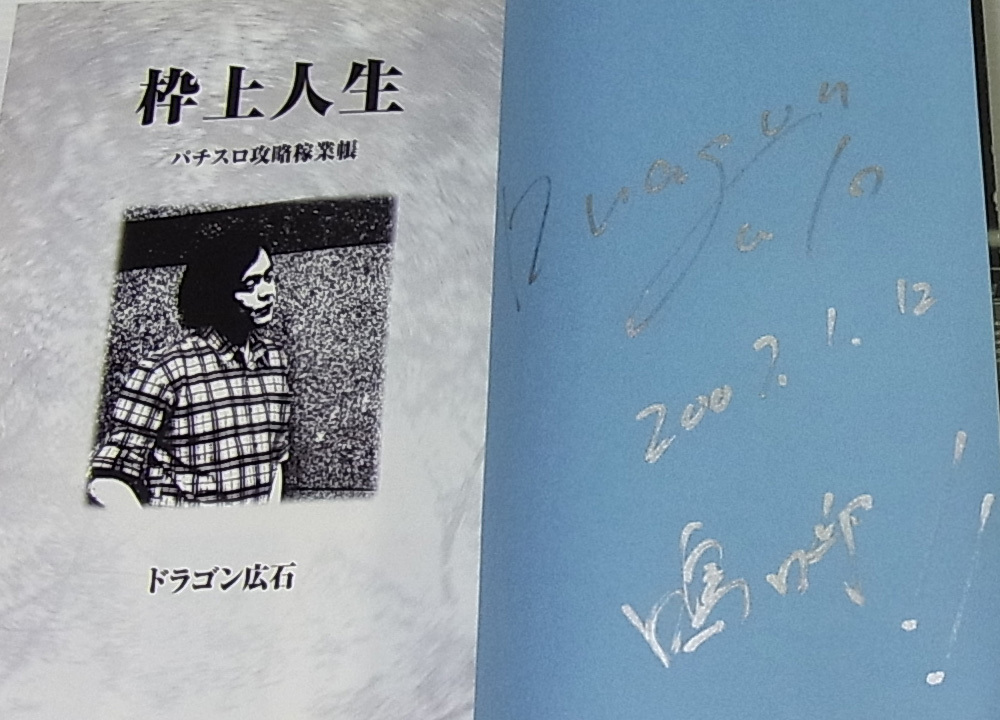 枠上人生
パチスロ攻略稼業帳
ドラゴン広石
Dragon
2007.1.12
嗚呼!!